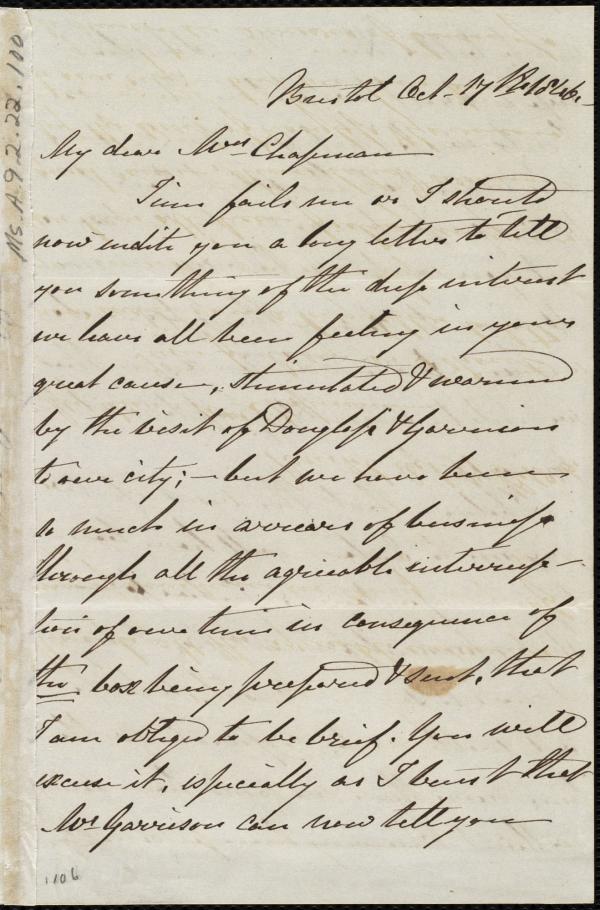 Bristol Oct- 17th 1846.
My dear Mrs Chapman
Time fails me or I should
now indite you a long letter to tell
you something of the deep interest
we have all been feeling in your
great cause, stimulated & warmed
by the visit of Douglass & Garrison
to our city; - but we have been
so much in arrears of business
through all the agreeable interrup-
tion of our time in consequence of
the box being prepared & sent, that
I am obliged to be brief. You will
excuse it, especially as I trust that
Mr Garrison can now tell you
Ms. A. 9. 2. 22. 100